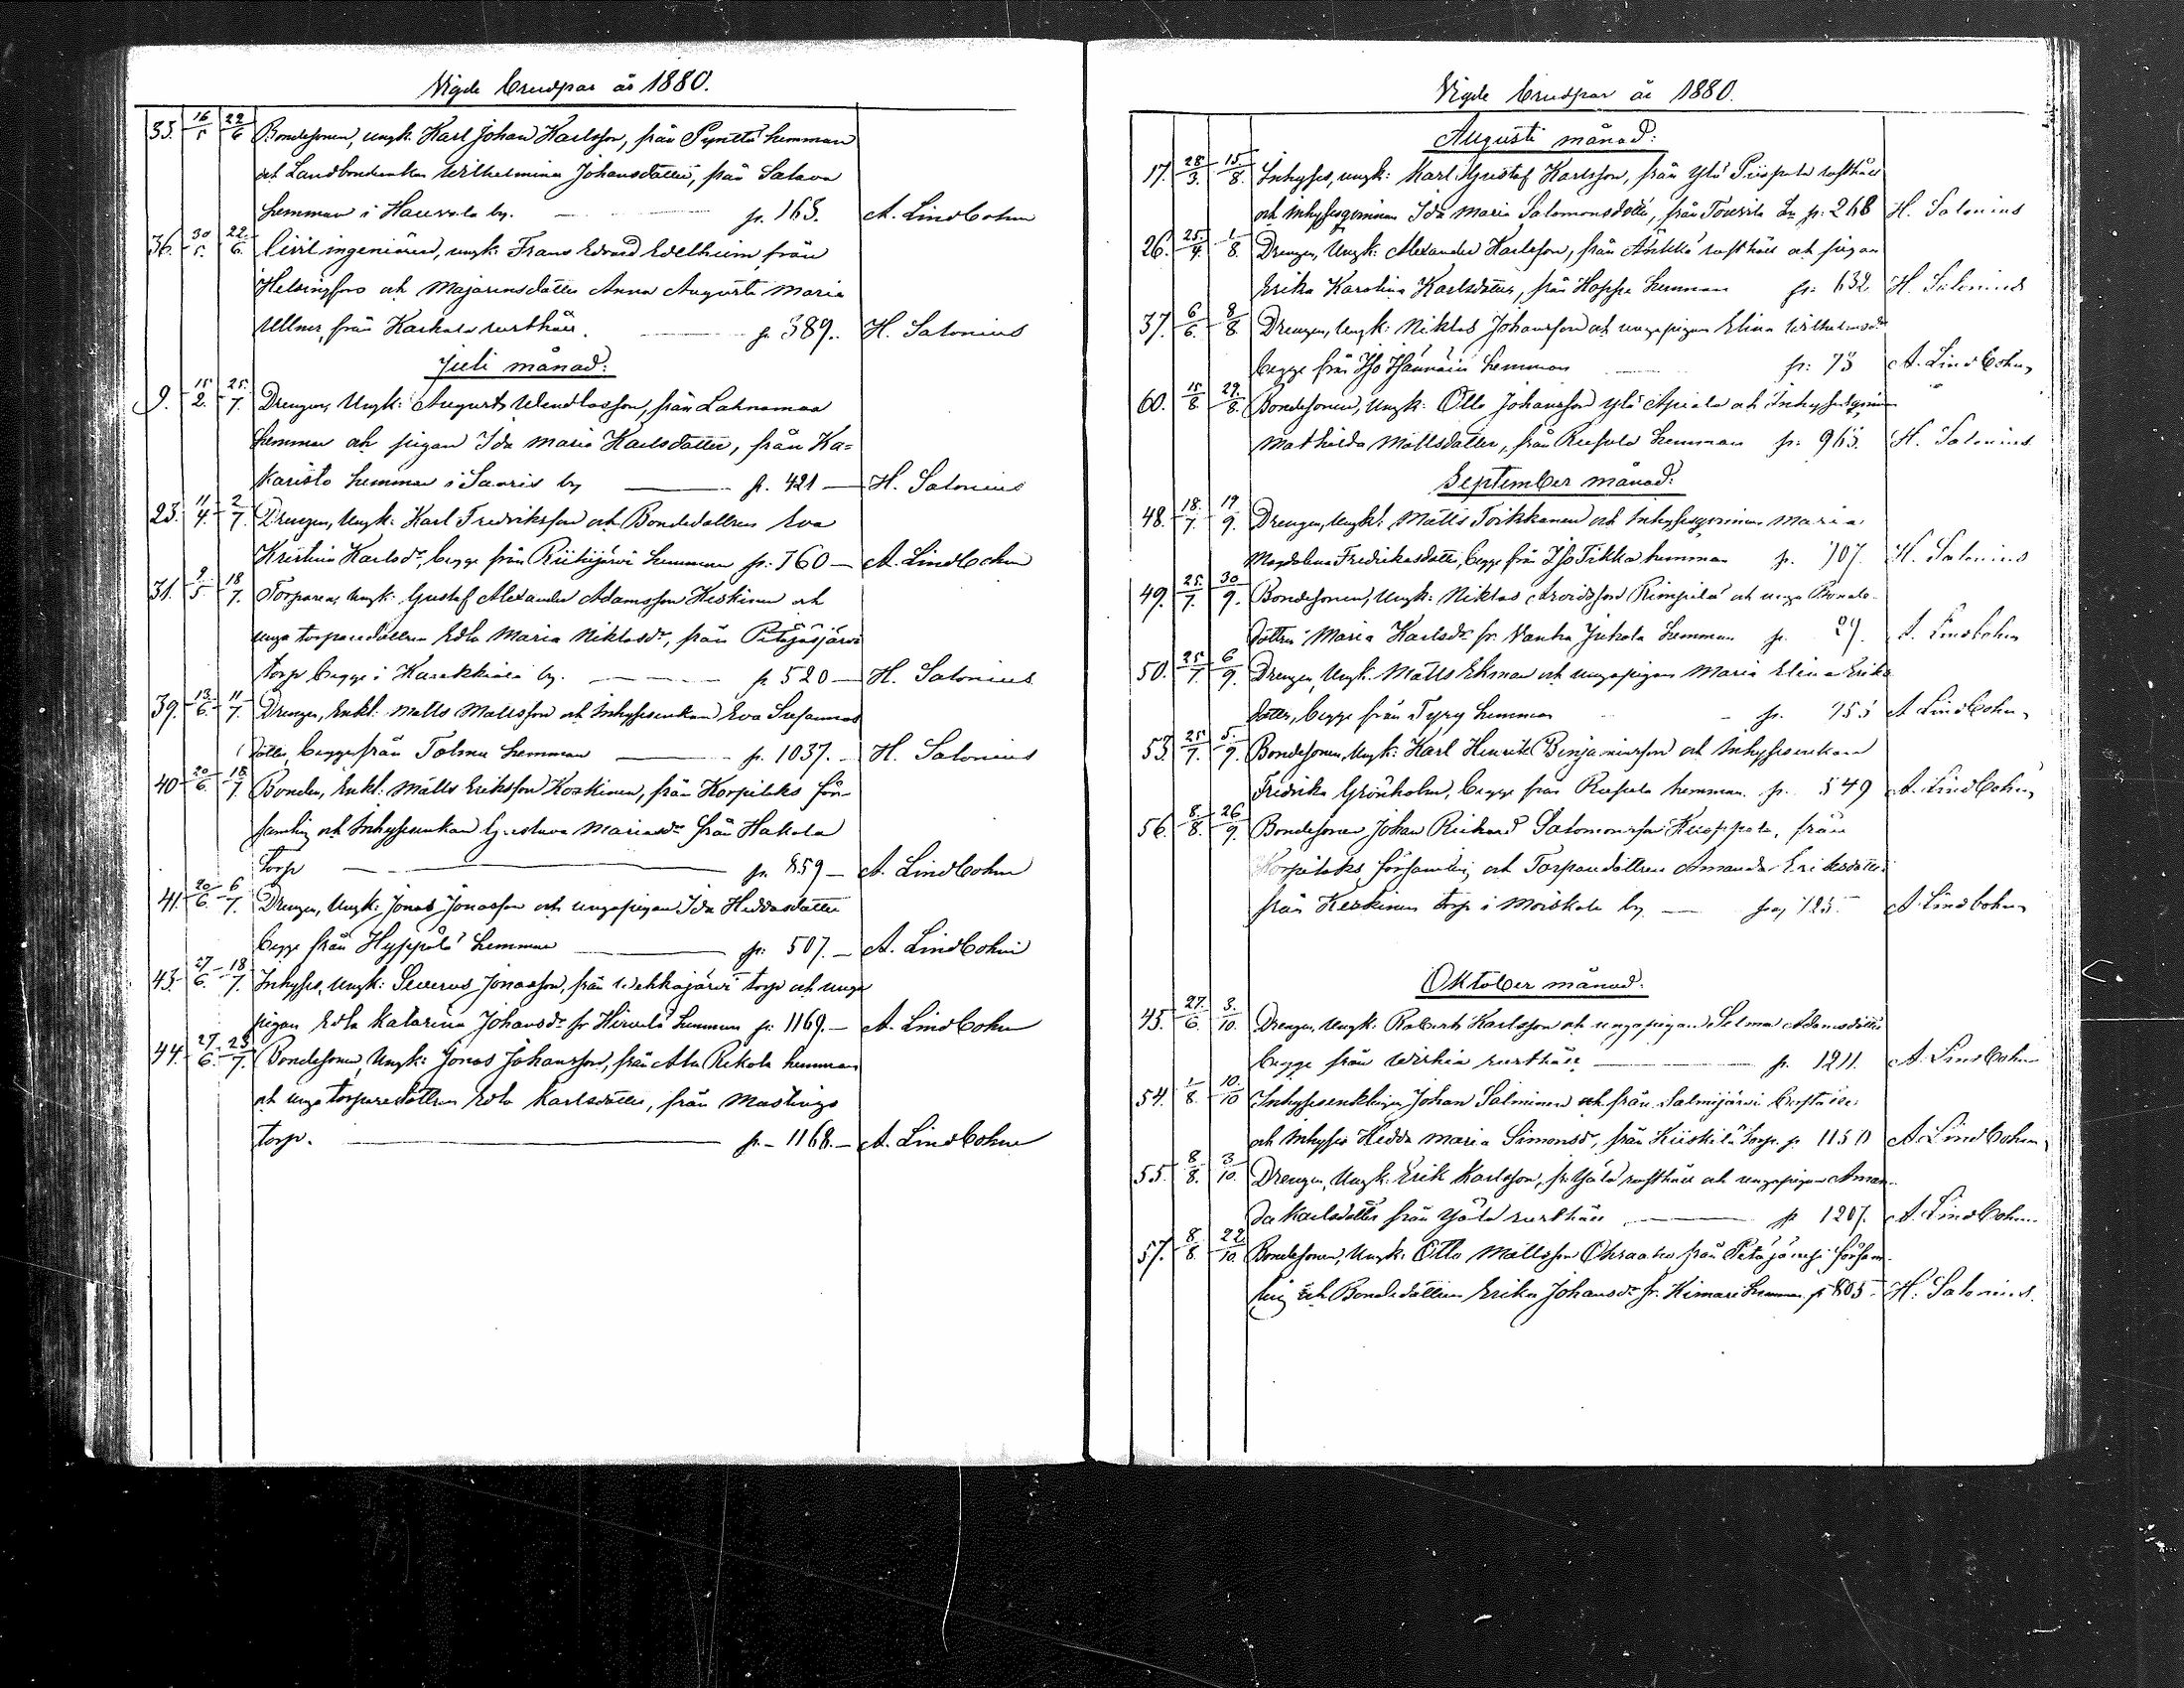 Vigde brudpar år 1880.
35. 16/5 22/6 Bondesonen, ungk. Karl Johan Karlsson, från hemman
och Landbondenkan Wilhelmina Johansdotter, från Salava
hemman i by. p. 163. A. Lindbohm
36. 30/5. 22./6. Civilingeniören, ungk. Frans Edvard Edelheim, från
Helsingfors och Majorensdotter Anna Augusta Maria
Ullner, från Karkola rusthåll. p. 389. H. Salonius
Juli månad:
9. 15/2. 25./7. Drengen, Ungk: August Wendlasson, från Lahnamaa
hemman och pigan Ida Maria Karlsdotter, från Ka=
karisto hemman i Sauris by p. 421 — H. Salonius
23. 11/4. 2/7. Drengen, Ungk: Karl Fredriksson och Bondedottren Eva
Kristina Karlsdr, begge från Riihijärvi hemman p. 760 — A. Lindbohm
31. 9/5 18/7. Torparen, Ungk: Gustaf Alexander Adamsson Heskinen och
unga torparedottren Edla Maria Niklasdr, från Petäjäsjärvi
torp begge i by. p 520 — H. Salonius
39. 13./6. 11/7. Drengen, Enkl: Matts Mattsson och Inhysesenkan Eva Susannas
dotter, begge från Tolmu hemman p. 1037. — H. Salonius
40 20/6. 18/7. Bonden, Enkl: Matts Eriksson Koskinen, från Korpilaks för-
samling och Inhysesenkan Gustava Mariasdr från Hakola
torp p. 859 — A. Lindbohm
41. 20/6. 6/7. Drengen, Ungk: Jonas Jonasson och ungapigan Ida Heddasdotter
begge från Hyppölä hemman p: 507. — A. Lindbohm
43. 27/6. 18/7. Inhyses, Ungk: Severus Jonasson, från Wehkajärvi torp och unga
pigan Edla Katarina Johansdr fr Hirvelä hemman p: 1169. — A. Lindbohm
44. 27/6. 25/7. Bondesonen, Ungk: Jonas Johansson, från Ala Rekola hemman
och unga torparedottren Edla Karlsdotter, från Mastings
torp. p. — 1168. — A. Lindbohm
Vigde brudpar år 1880.
Augusti månad:
17. 28/3. 15/8. Inhyses, ungk: Karl Gustaf Karlsson, från Ylä Piispala rusthåll
och Inhysesqvinnan Ida Maria Salomonsdotter, från p. 268 H. Salonius
26. 25./4. 1/8. Drengen, Ungk: Alexander Karlsson, från rusthåll och pigan
Erika Karolina Karlsdotter, från Hoppe hemman p: 632. H. Salonius
37. 6/6. 8/8. Drengen, Ungk: Niklas Johansson och ungapigan Elina Wilhelmsdr
begge från Iso hemman p: 73 A. Lindbohm
60. 15/8. 29/8. Bondesonen, Ungk: Otto Johansson Ylä Apiala och
Mathilda Mattsdotter, från Ruskela hemman p: 963. H. Salonius
September månad:
48. 18./7. 19/9. Drengen, Ungkl: Matts Toikkanen och Inhysesqvinnan Maria
Magdalena Fredrikasdotter, begge från Iso Tikka hemman p. 707. H. Salonius
49. 25./7. 30/9. Bondesonen, Ungk: Niklas Arvidsson Rimpilä och unga Bonde-
dottren Maria Karlsdr fr. Vanha Jukola hemman p. 29. A. Lindbohm
50. 25/7. 6/9. Drengen, Ungk. Matts Ekman och ungapigan Maria Elina Erika
dotter, begge från Tyry hemman p. 753 A. Lindbohm
53. 25/7. 5./9. Bondesonen, Ungk: Karl Henrik Benjaminsson och Inhysesenkan
Fredrika Grönholm, begge från Ruskela hemman. p. 549 A. Lindbohm
56. 8/8. 26/9. Bondesonen Johan Richard Salomonsson Kuoppala, från
Korpilaks församling och Torparedottren Amanda Eriksdotter
från Keskinen torp i Moiskala by — pag 725. A. Lindbohm
Oktober månad:
45. 27./6. 3./10. Drengen, Ungk: Robert Karlsson och ungapigan Selma Adamsdotter
begge från Wirkia rusthåll p. 1211. A. Lindbohm
54. 1/8. 10./10 Inhysesenklingen Johan Salminen och från Salmijärvi
och Inhyses Hedda Maria Simonsdr, från Kiiskilä torp. p 1150 A. Lindbohm
55. 8/8. 3/10. Drengen, Ungk. Erik Karlsson, fr. Ylölä rusthåll och ungapigan Aman-
da Karlsdotter från Ylölä rusthåll p 1207. A. Lindbohm.
57. 8./8. 22/10. Bondesonen, Ungk: Otto Mattsson Ohraaho från Petäjävesi försam-
ling och Bondedottren Erika Johansdr fr. Kimari hemman p 805 — H. Salonius.